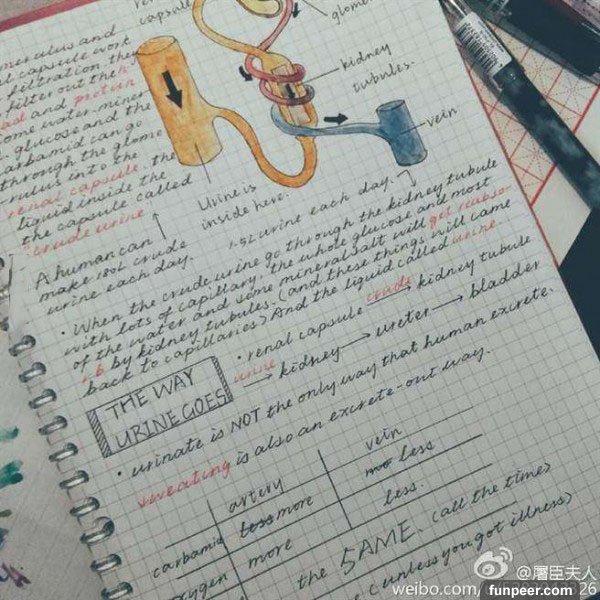 capsule
glome
merulus and
al capsule work
filtration. the
filter out the
and protein
ome water, miner
glucose and the
carbamid can go
through the glome
rulus into the
renal capsule. the
liquid inside the
the capsule called
crude urine
kidney
tubules.
vein
Urine is
inside here.
A human can
make 180L crude
urine each day.
1.5L urine each day.
· When the crude urine go through the kidney tubule
with lots of capillary. the whole glucose and most
of the water and some mineral salt will get reabsor
b by kidney tubules. (and these things will came
back to capillaries) And the liquid called urine.
THE WAY
URINE GOES
· renal capsule crude → kidney tubule
urine → kidney → ureter → bladder
· urinate is NOT the only way that human excrete.
sweating is also an excrete-out way.
artery vein
carbamid less more mo less
oxygen more less.
the SAME. (all the time)
(unless you got illness)
@屠臣夫人
weibo.com/
26
funpeer.com